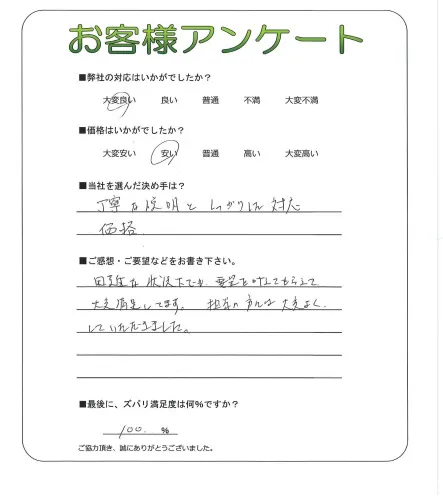 お客様アンケート
■弊社の対応はいかがでしたか？
大変良い 良い 普通 不満 大変不満
■価格はいかがでしたか？
大変安い 安い 普通 高い 大変高い
■当社を選んだ決め手は？
丁寧な説明としっかりした対応
価格
■ご感想・ご要望などをお書き下さい。
な状況下でも、要望を叶えてもらえて
大変満足してます。 担当の方には大変よく
していただきました。
■最後に、ズバリ満足度は何%ですか？
100. %
ご協力頂き、誠にありがとうございました。